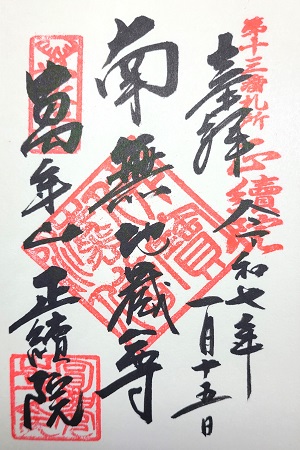 第十三番札所 正續院
奉拝 令和七年一月十五日
南無地蔵尊
萬年山 正續院